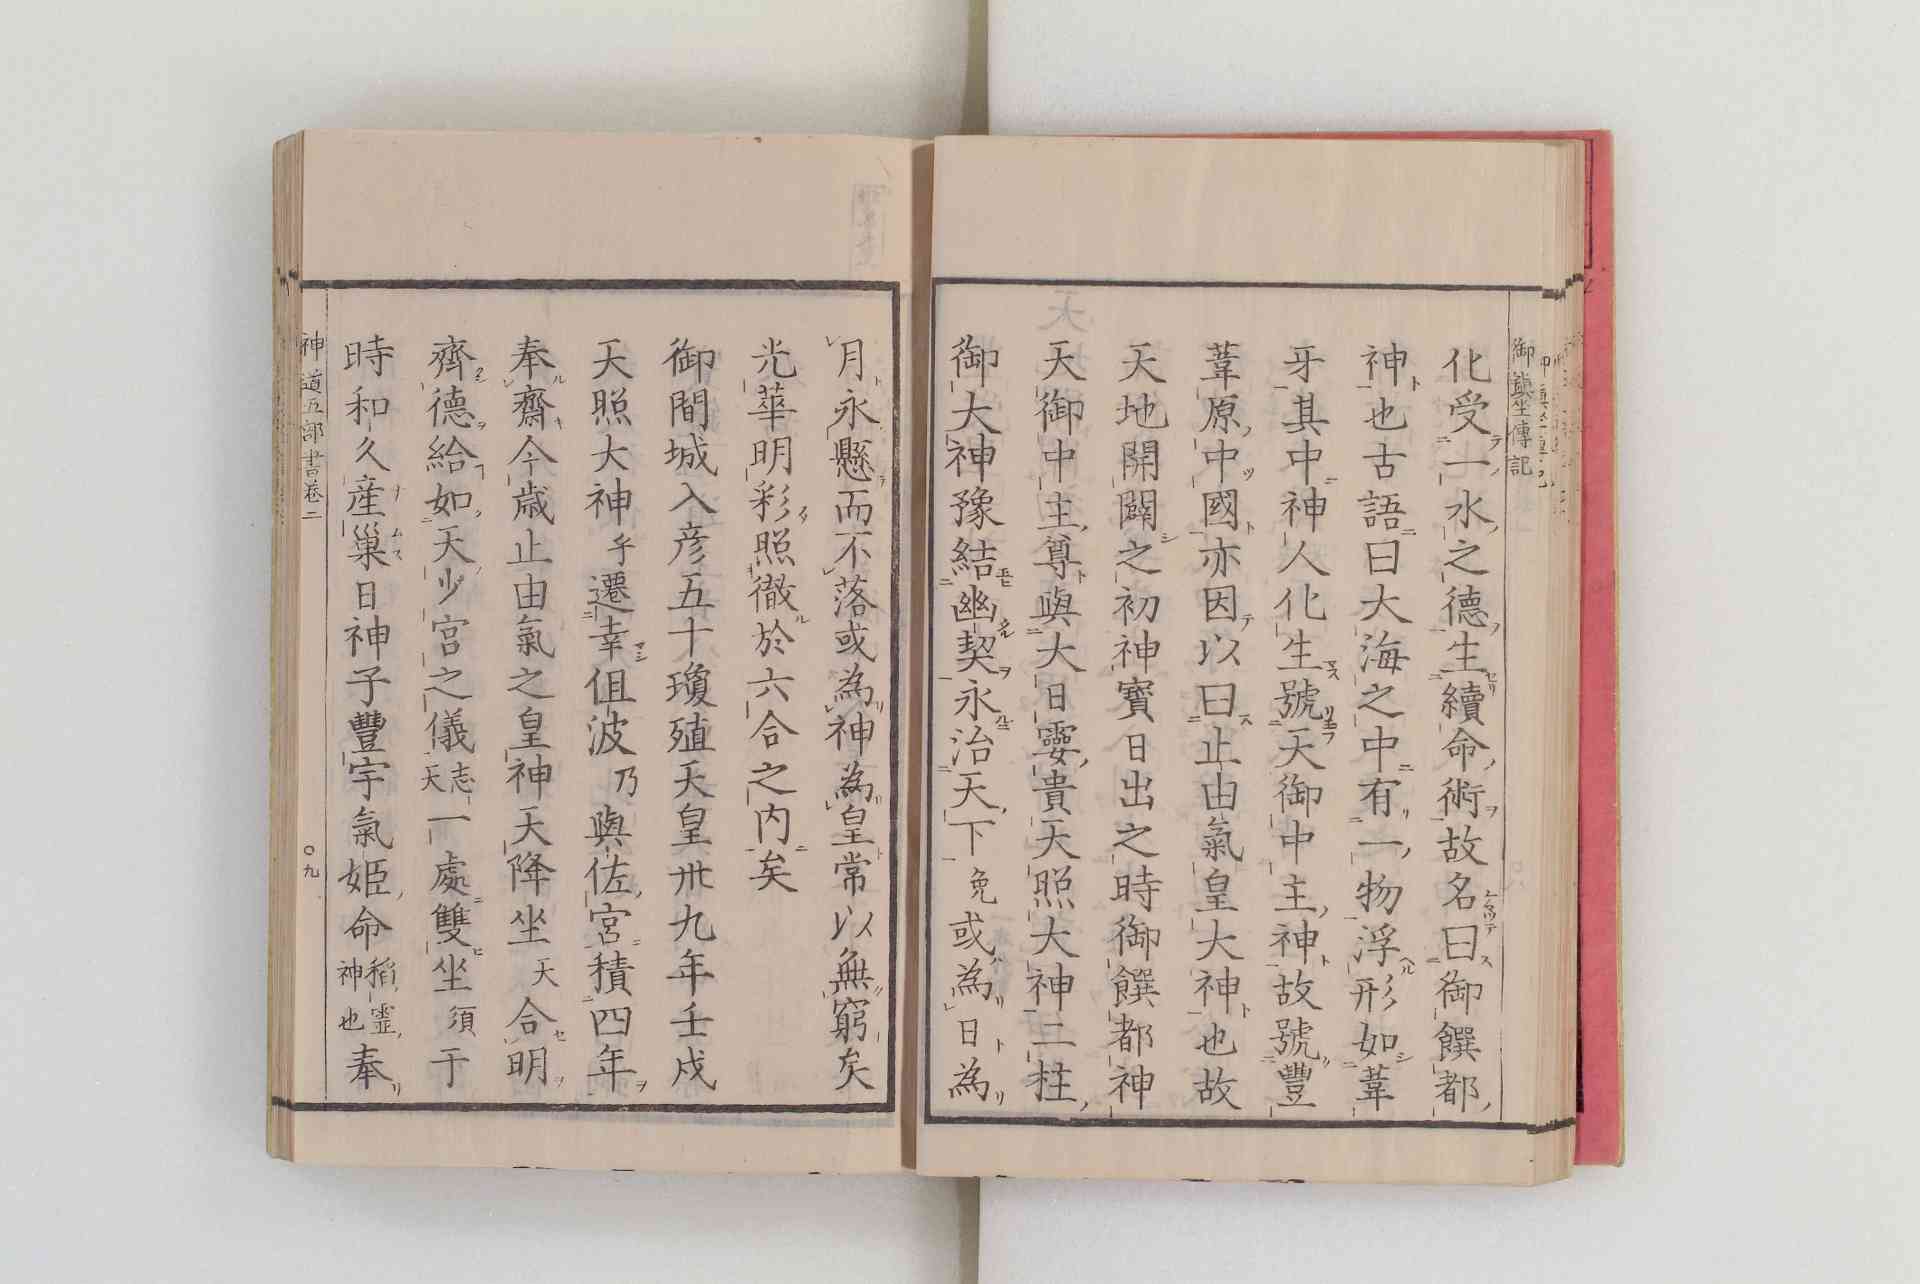 御鎮坐傳記
化受一水之德生續命術故名曰御饌都
神也古語曰大海之中有一物浮形如葦
牙其中神人化生號天御中主神故號豐
葦原中國亦因以曰止由氣皇大神也故
天地開闢之初神寶日出之時御饌都神
天御中主尊與大日孁貴天照大神二柱
御大神豫結幽契永治天下免或為日為
月永懸而不落或為神為皇常以無窮矣
光華明彩照徹於六合之内矣
御間城入彦五十瓊殖天皇卅九年壬戌
天照大神乎遷幸伹波乃與佐宮積四年
奉齋今歳止由氣之皇神天降坐天合明
齊德給如天少宮之儀志天一處雙坐須于
時和久産巢日神子豐宇氣姫命稻靈神也奉
神道五部書卷二
〇九